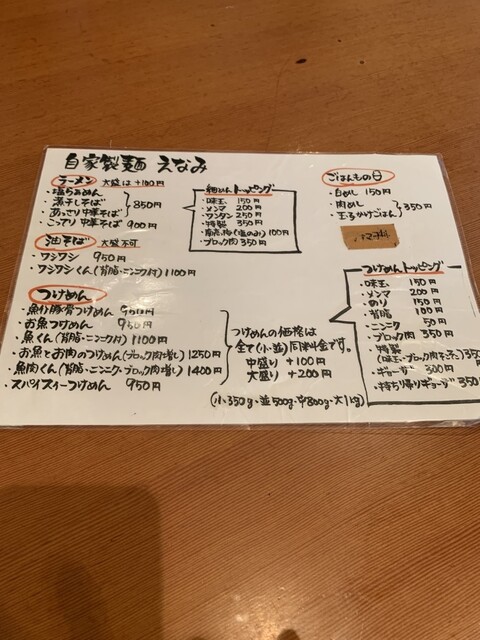 自家製麺 えなみ
ラーメン 大盛は+100円
・塩らぁめん
・煮干しそば
・あっさり中華そば
850円
・こってり中華そば 900円
油そば 大盛不可
・ワシワシ 950円
・ワシワシくん(背脂・ニンニク付) 1100円
つけめん
・魚介豚骨つけめん 950円
・お魚つけめん 950円
・魚くん(背脂・ニンニク付) 1100円
・お魚とお肉のつけめん(ブロック肉増し) 1250円
・魚肉くん(背脂・ニンニク・ブロック肉増し) 1400円
・スパイスィーつけめん 950円
つけめんの価格は
全て(小・並)同料金です。
中盛り +100円
大盛り +200円
(小350g・並500g・中800g・大1kg)
トッピング
・味玉 150円
・メンマ 200円
・ワンタン 250円
・特製 350円
(塩のみ) 100円
・ブロック肉 350円
ごはんもの
・白めし 150円
・肉めし
・玉子かけごはん
350円
つけめんトッピング
・味玉 150円
・メンマ 200円
・のり 150円
・背脂 100円
・ニンニク 50円
・ブロック肉 350円
・特製 350円
・ギョーザ 300円
・持ち帰りギョーザ 350